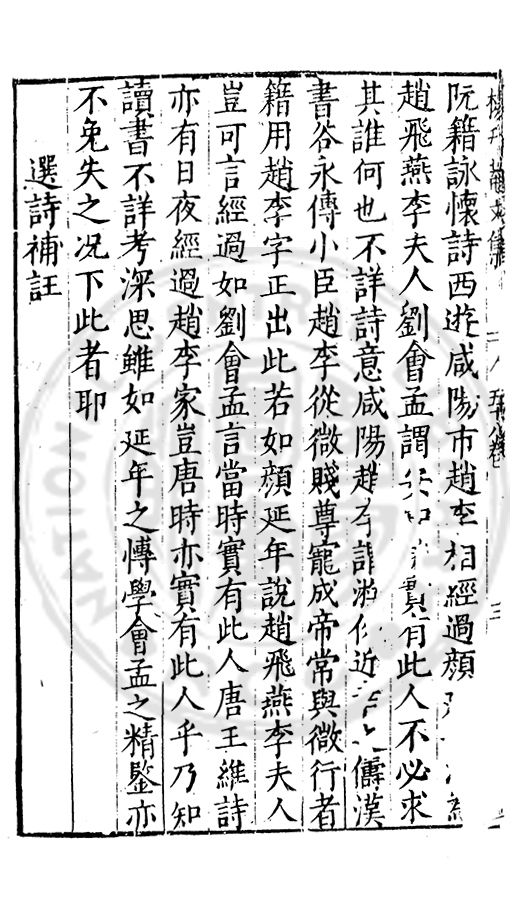 阮籍詠懷詩西遊咸陽市趙李相經過顏
趙飛燕李夫人劉會孟謂 實有此人不必求
其誰何也不詳詩意咸陽趙李謂游俠近 儔漢
書谷永傳小臣趙李從微賤尊寵成帝常與微行者
籍用趙李字正出此若如顏延年說趙飛燕李夫人
豈可言經過如劉會孟言當時實有此人唐王維詩
亦有日夜經過趙李家豈唐時亦實有此人乎乃知
讀書不詳考深思雖如延年之博學會孟之精鑒亦
不免失之况下此者耶
選詩補註